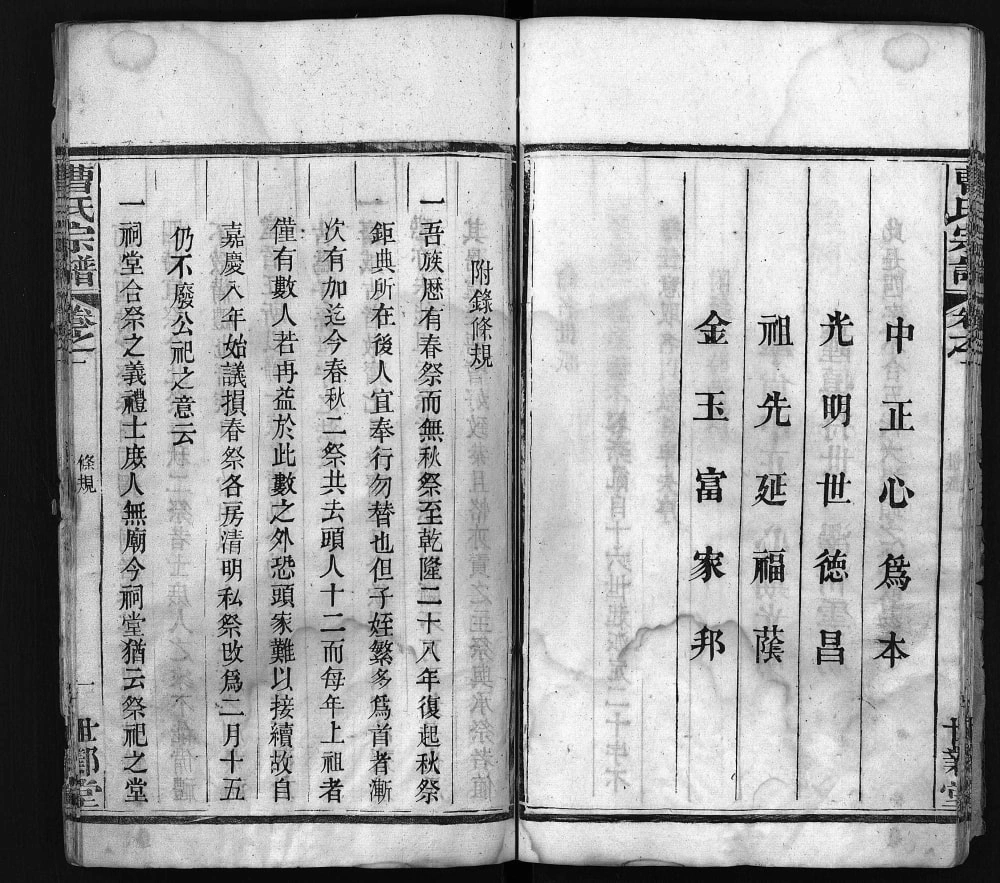 中正心為本
光明世德昌
祖先延福蔭
金玉富家邦
附錄條規
一吾族歷有春祭而無秋祭至乾隆二十八年復起秋祭
鉅典所在後人宜奉行勿替也但子姪繁多為首者漸
次有加迄今春秋二祭共去頭人十二而每年上祖者
僅有數人若再益於此數之外恐頭家難以接續故自
嘉慶八年始議損春祭各房清明私祭改為二月十五
仍不廢公祀之意云
一祠堂合祭之義禮士庶人無廟今祠堂猶云祭祀之堂
曹氏宗譜
卷之一
條規
一